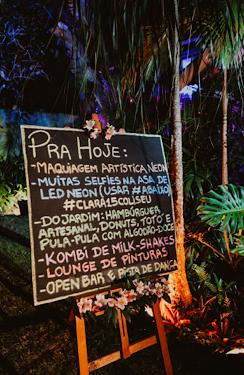 PRA HOJE:
-MAQUIAGEM ARTÍSTICA NEON
-MUITAS SELFIES NA ASA DE
LED NEON (USAR #ABAIXO)
#CLARA15COLISEU
-DO JARDIM: HAMBÚRGUER
ARTESANAL, DONUTS, TOTO E
PULA-PULA COM ALGODÃO-DOCE
-KOMBI DE MILK-SHAKES
-LOUNGE DE PINTURAS
-OPEN BAR E PISTA DE DANÇA